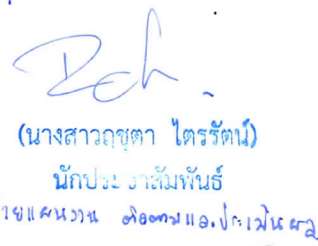 (นางสาวฤชุตา ไตรรัตน์)
นักประชาสัมพันธ์
ายแผนงาน ติดตามและประเมินผล